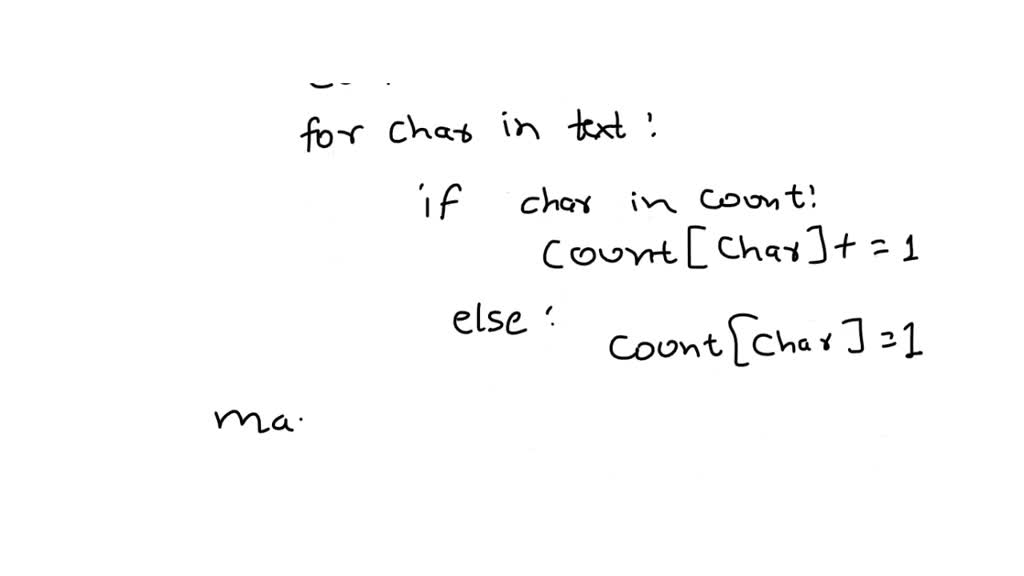 for char in text :
if char in count:
Count [Char] + = 1
else :
Count [Char] = 1
ma